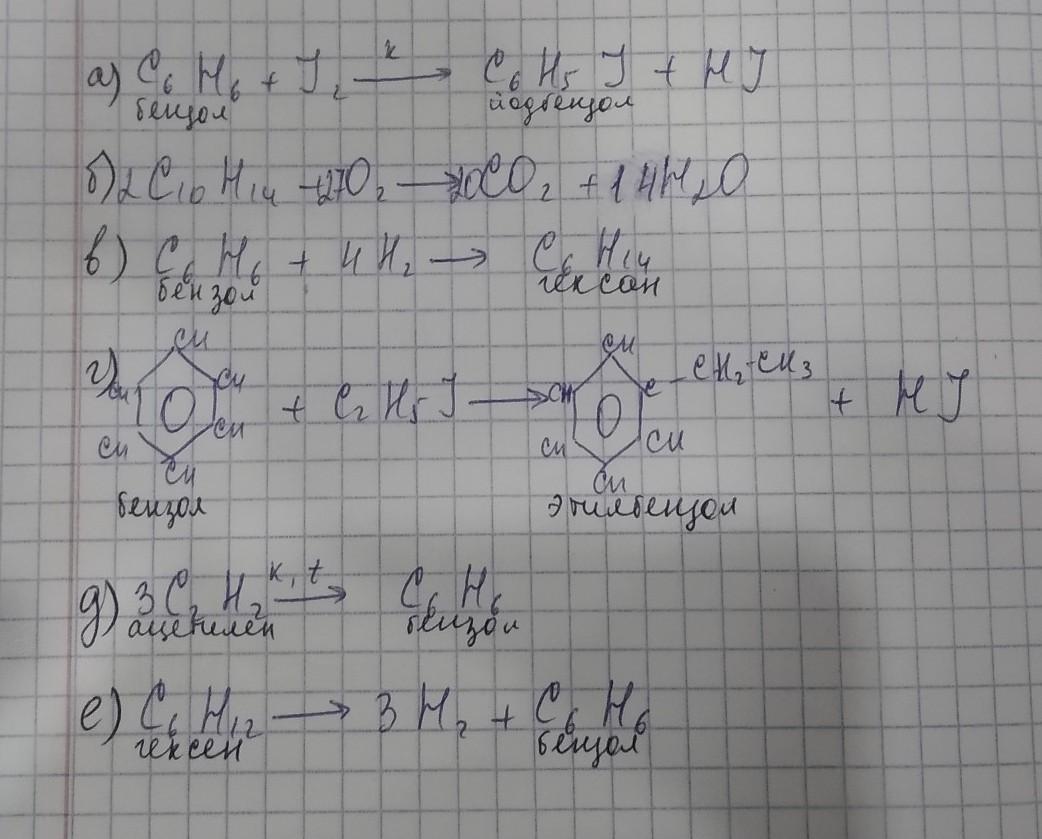 а) C6H6 + J2 —k→ C6H5J + HJ
бензол йодбензол
б) 2C10H14 + 27O2 → 20CO2 + 14H2O
в) C6H6 + 4H2 → C6H14
бензол гексан
г) CH CH CH CH CH CH + C2H5J → CH CH C-CH2-CH3 CH CH CH + HJ
бензол этилбензол
д) 3C2H2 —k, t→ C6H6
ацетилен бензол
е) C6H12 → 3H2 + C6H6
гексен бензол